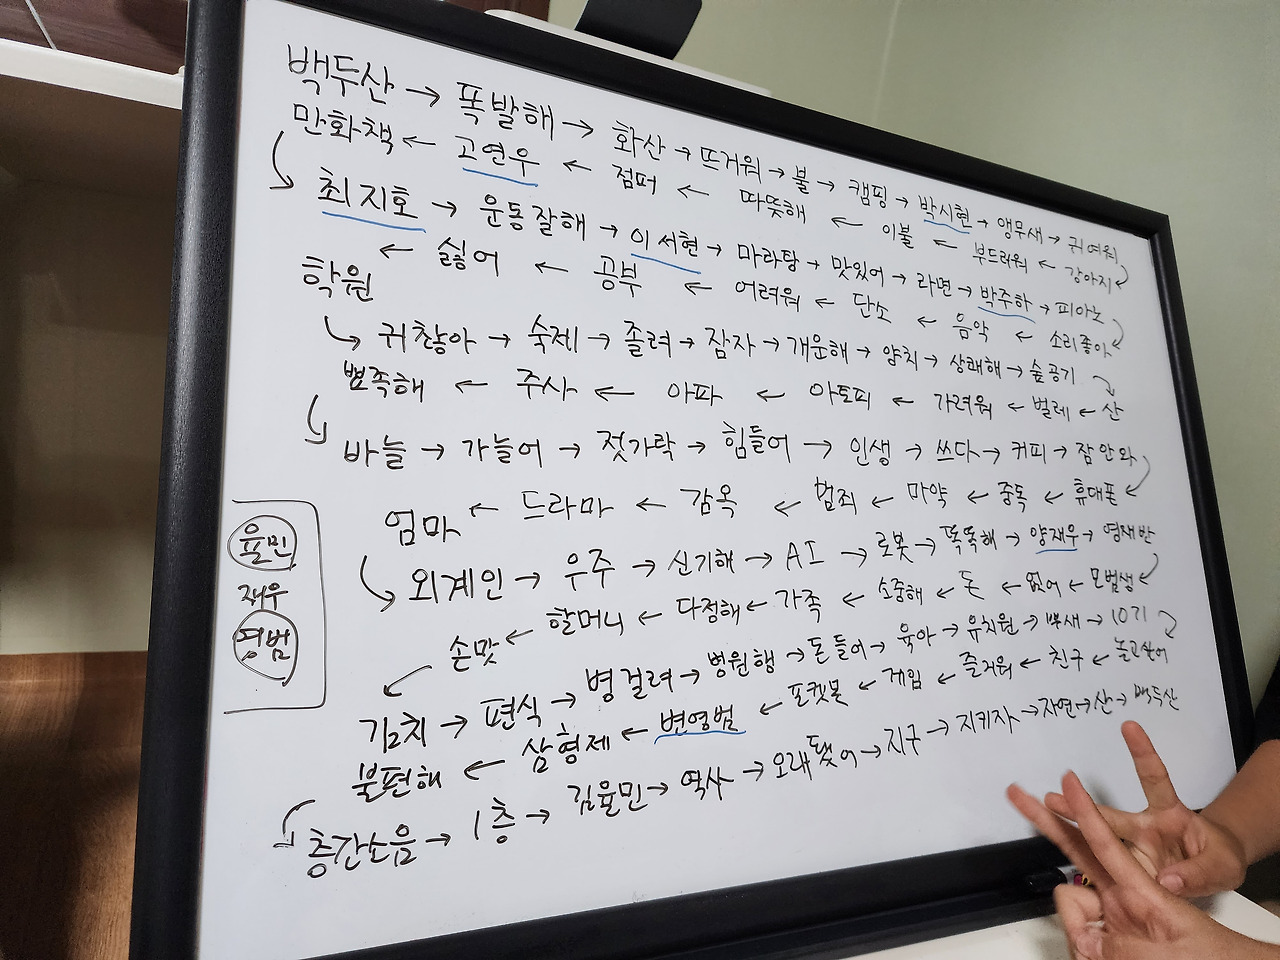 백두산 → 폭발해 → 화산 → 뜨거워 → 불 → 캠핑 → 박시현 → 앵무새 → 귀여워
만화책 ← 고연우 ← 점퍼 ← 따뜻해 ← 이불 ← 부드러워 ← 강아지
최지호 → 운동잘해 → 이서현 → 마라탕 → 맛있어 → 라면 → 박주하 → 피아노
학원 ← 싫어 ← 공부 ← 어려워 ← 단소 ← 음악 ← 소리좋아
귀찮아 → 숙제 → 졸려 → 잠자 → 개운해 → 양치 → 상쾌해 → 숲공기
뾰족해 ← 주사 ← 아파 ← 아토피 ← 가려워 ← 벌레 ← 산
바늘 → 가늘어 → 젓가락 → 힘들어 → 인생 → 쓰다 → 커피 → 잠안와
엄마 ← 드라마 ← 감옥 ← 범죄 ← 마약 ← 중독 ← 휴대폰
외계인 → 우주 → 신기해 → AI → 로봇 → 똑똑해 → 양재우 → 영재반
손맛 ← 할머니 ← 다정해 ← 가족 ← 소중해 ← 돈 ← 없어 ← 모범생
김치 → 편식 → 병걸려 → 병원행 → 돈들어 → 육아 → 유치원 → 뿌새 → 10기
불편해 ← 삼형제 ← 변영범 ← 포켓몬 ← 게임 ← 즐거워 ← 친구 ← 놀고싶어
층간소음 → 1층 → 김율민 → 역사 → 오래됐어 → 지구 → 지키자 → 자연 → 산 → 백두산
율민
재우
영범